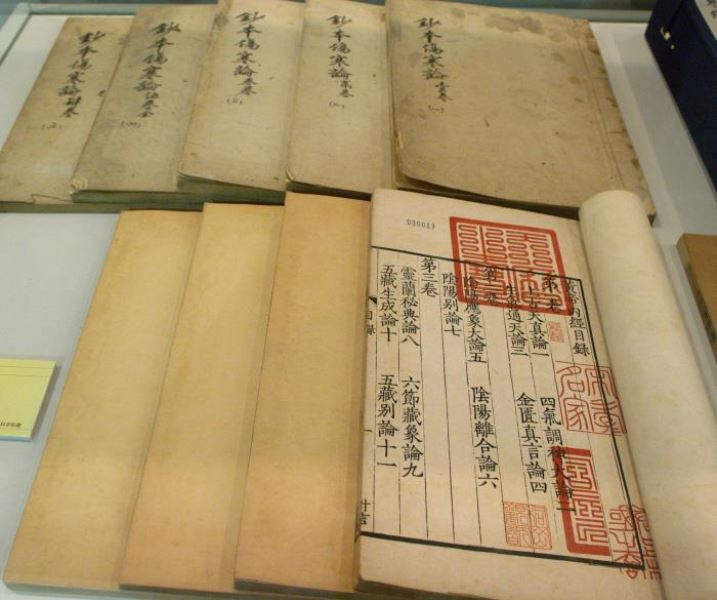 鈔本傷寒論
鈔本傷寒論
鈔本傷寒論
鈔本傷寒論
鈔本傷寒論
(一)
030013
黃帝內經目錄
第一卷
上古天真論一 四氣調神大論二
生氣通天論三 金匱真言論四
第二卷
陰陽應象大論五 陰陽離合論六
陰陽別論七
第三卷
靈蘭秘典論八 六節藏象論九
五藏生成論十 五藏別論十一
目錄 一